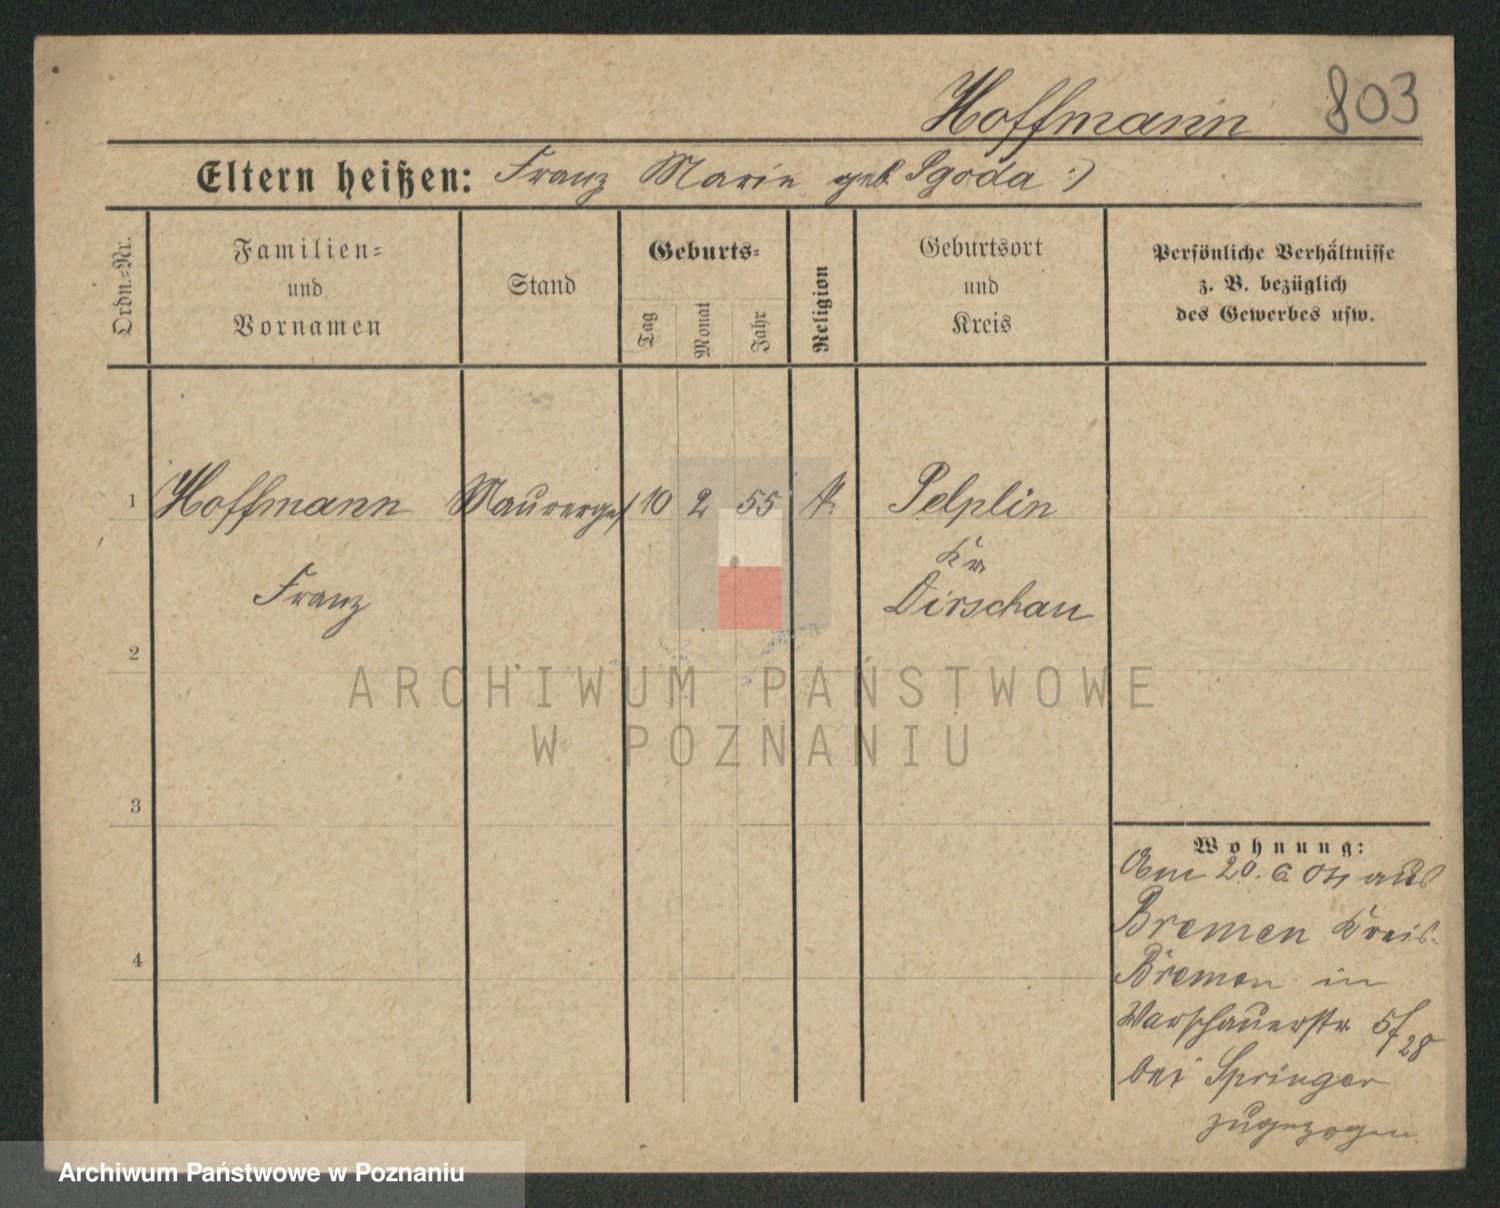 Hoffmann 803
Eltern heißen: Franz Marie geb. Sgoda :)
Ordn.-Nr.
Familien-
und
Vornamen
Stand
Geburts-
Tag
Monat
Jahr
Religion
Geburtsort
und
Kreis
Persönliche Verhältnisse
z. B. bezüglich
des Gewerbes usw.
1 Hoffmann Maurerges 10 2 55 Pelplin
Franz
Kr
Dirschau
2
3
4
Wohnung:
Am 20. 6. 04 aus
Bremen Kreis-
Bremen in
Warschauerstr
bei Springer
zugezogen.
ARCHIWUM PAŃSTWOWE
W POZNANIU
Archiwum Państwowe w Poznaniu